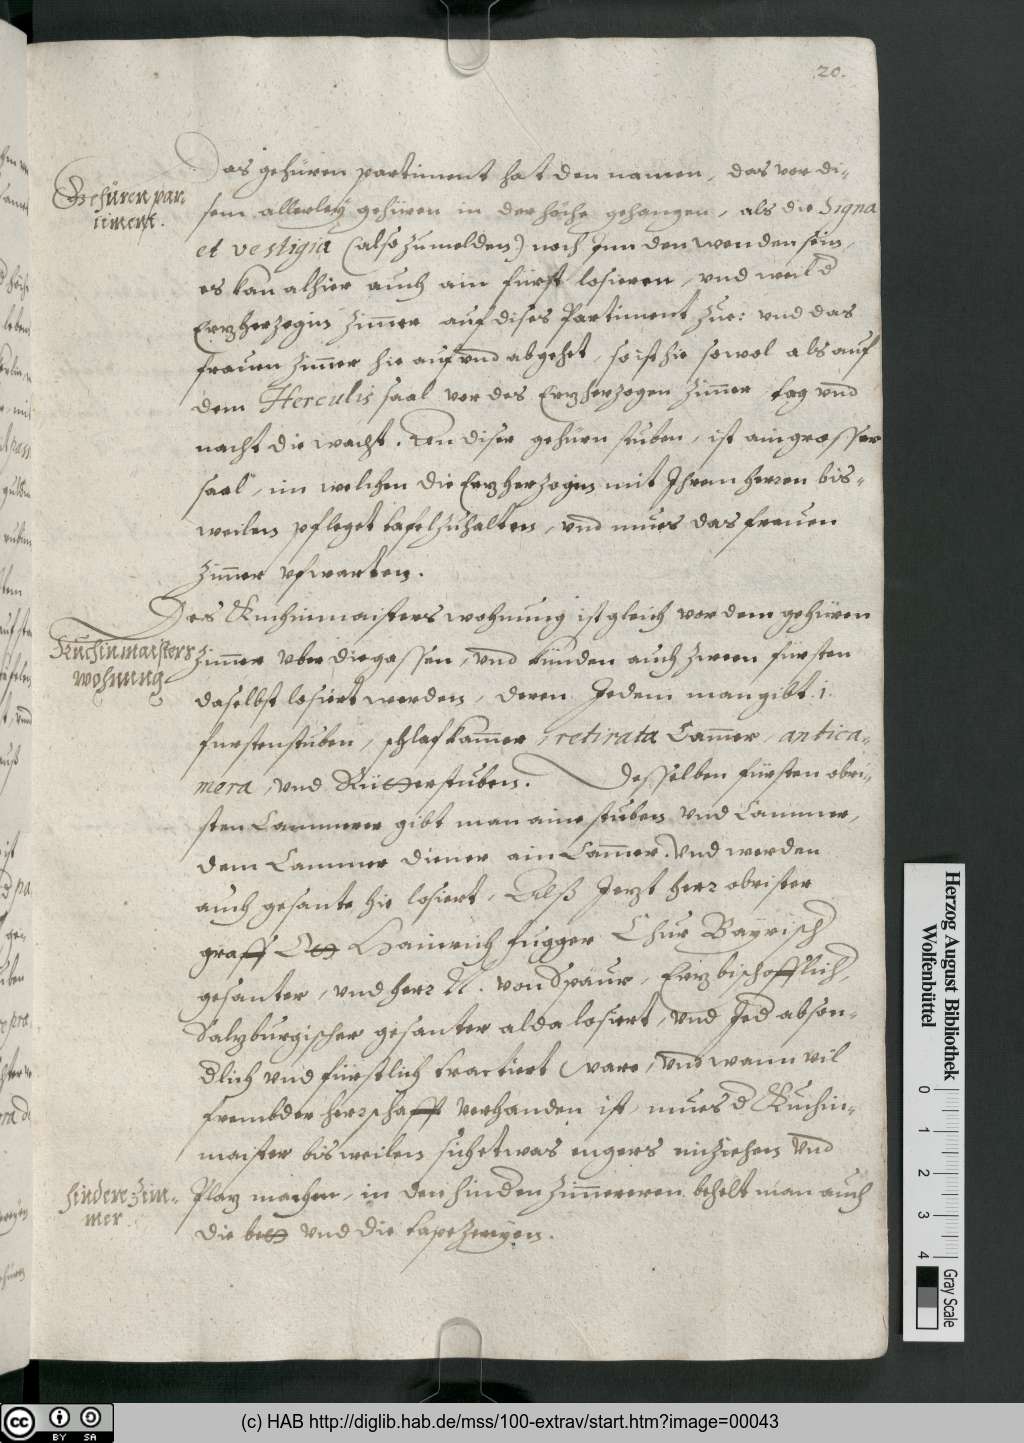 20.
Gehüren par
timent.
Das gehüren partiment hat den namen, das vor di-
sem allerleÿ gehüren in der höche gehangen, als die Signa
et vestigia (also zumelden) noch Inn den wenden sein,
es kan alhier auch ain fürst losieren, vnd weil d
Erzherzogin Zimer auf dises Partiment Zue: vnd das
frauen Zimer hie auf vnd abgehet, so ist hie sowol als auf
dem Herculis saal vor des Erzherzogen Zimer tag vnd
nacht die wacht. Von diser gehürn stuben, ist ain grosser
saal, im welchen die Erzherzogin mit Ihrem herren bis-
weilen pfleget tafel zuhalten, vnd mues das frauen
Zimer vfwarten.
Kuchinmaisters
wohnung
Des Kuchinmaisters wohnung ist gleich vor dem gehüren
Zimer vber die gassen, vnd künden auch zween fürsten
daselbst losiert werden, deren Jedem man gibt .i.
furstenstuben, schlafkamer, retirata Camer, antica-
mera, vnd Ritterstuben. Desselben fürsten obri-
sten Cammerer gibt man aine stuben vnd Cammer,
dem Cammer diener ain Camer. vnd werden
auch gesante hie losiert, Alß Jezt herr obrister
graff Ott Hainrich fugger Chur Bayrisch
gesanter, vnd herr N. von Spaur, Erzbischofflich,
Salzburgischer gesanter alda losiert, vnd Jed abson-
dlich vnd fürstlich tractiert ware, vnd wann vil
frembder herrschafft verhanden ist, mues d Kuchin-
maister bisweilen sich etwas engers einziehen vnd
hindere Zim-
mer
Plaz machen, in den hindern Zimmeren behelt man auch
die bett vnd die tapezereyen.
Herzog August Bibliothek
Wolfenbüttel
0 1 2 3 4
Gray Scale
cc BY SA
(c) HAB http://diglib.hab.de/mss/100-extrav/start.htm?image=00043